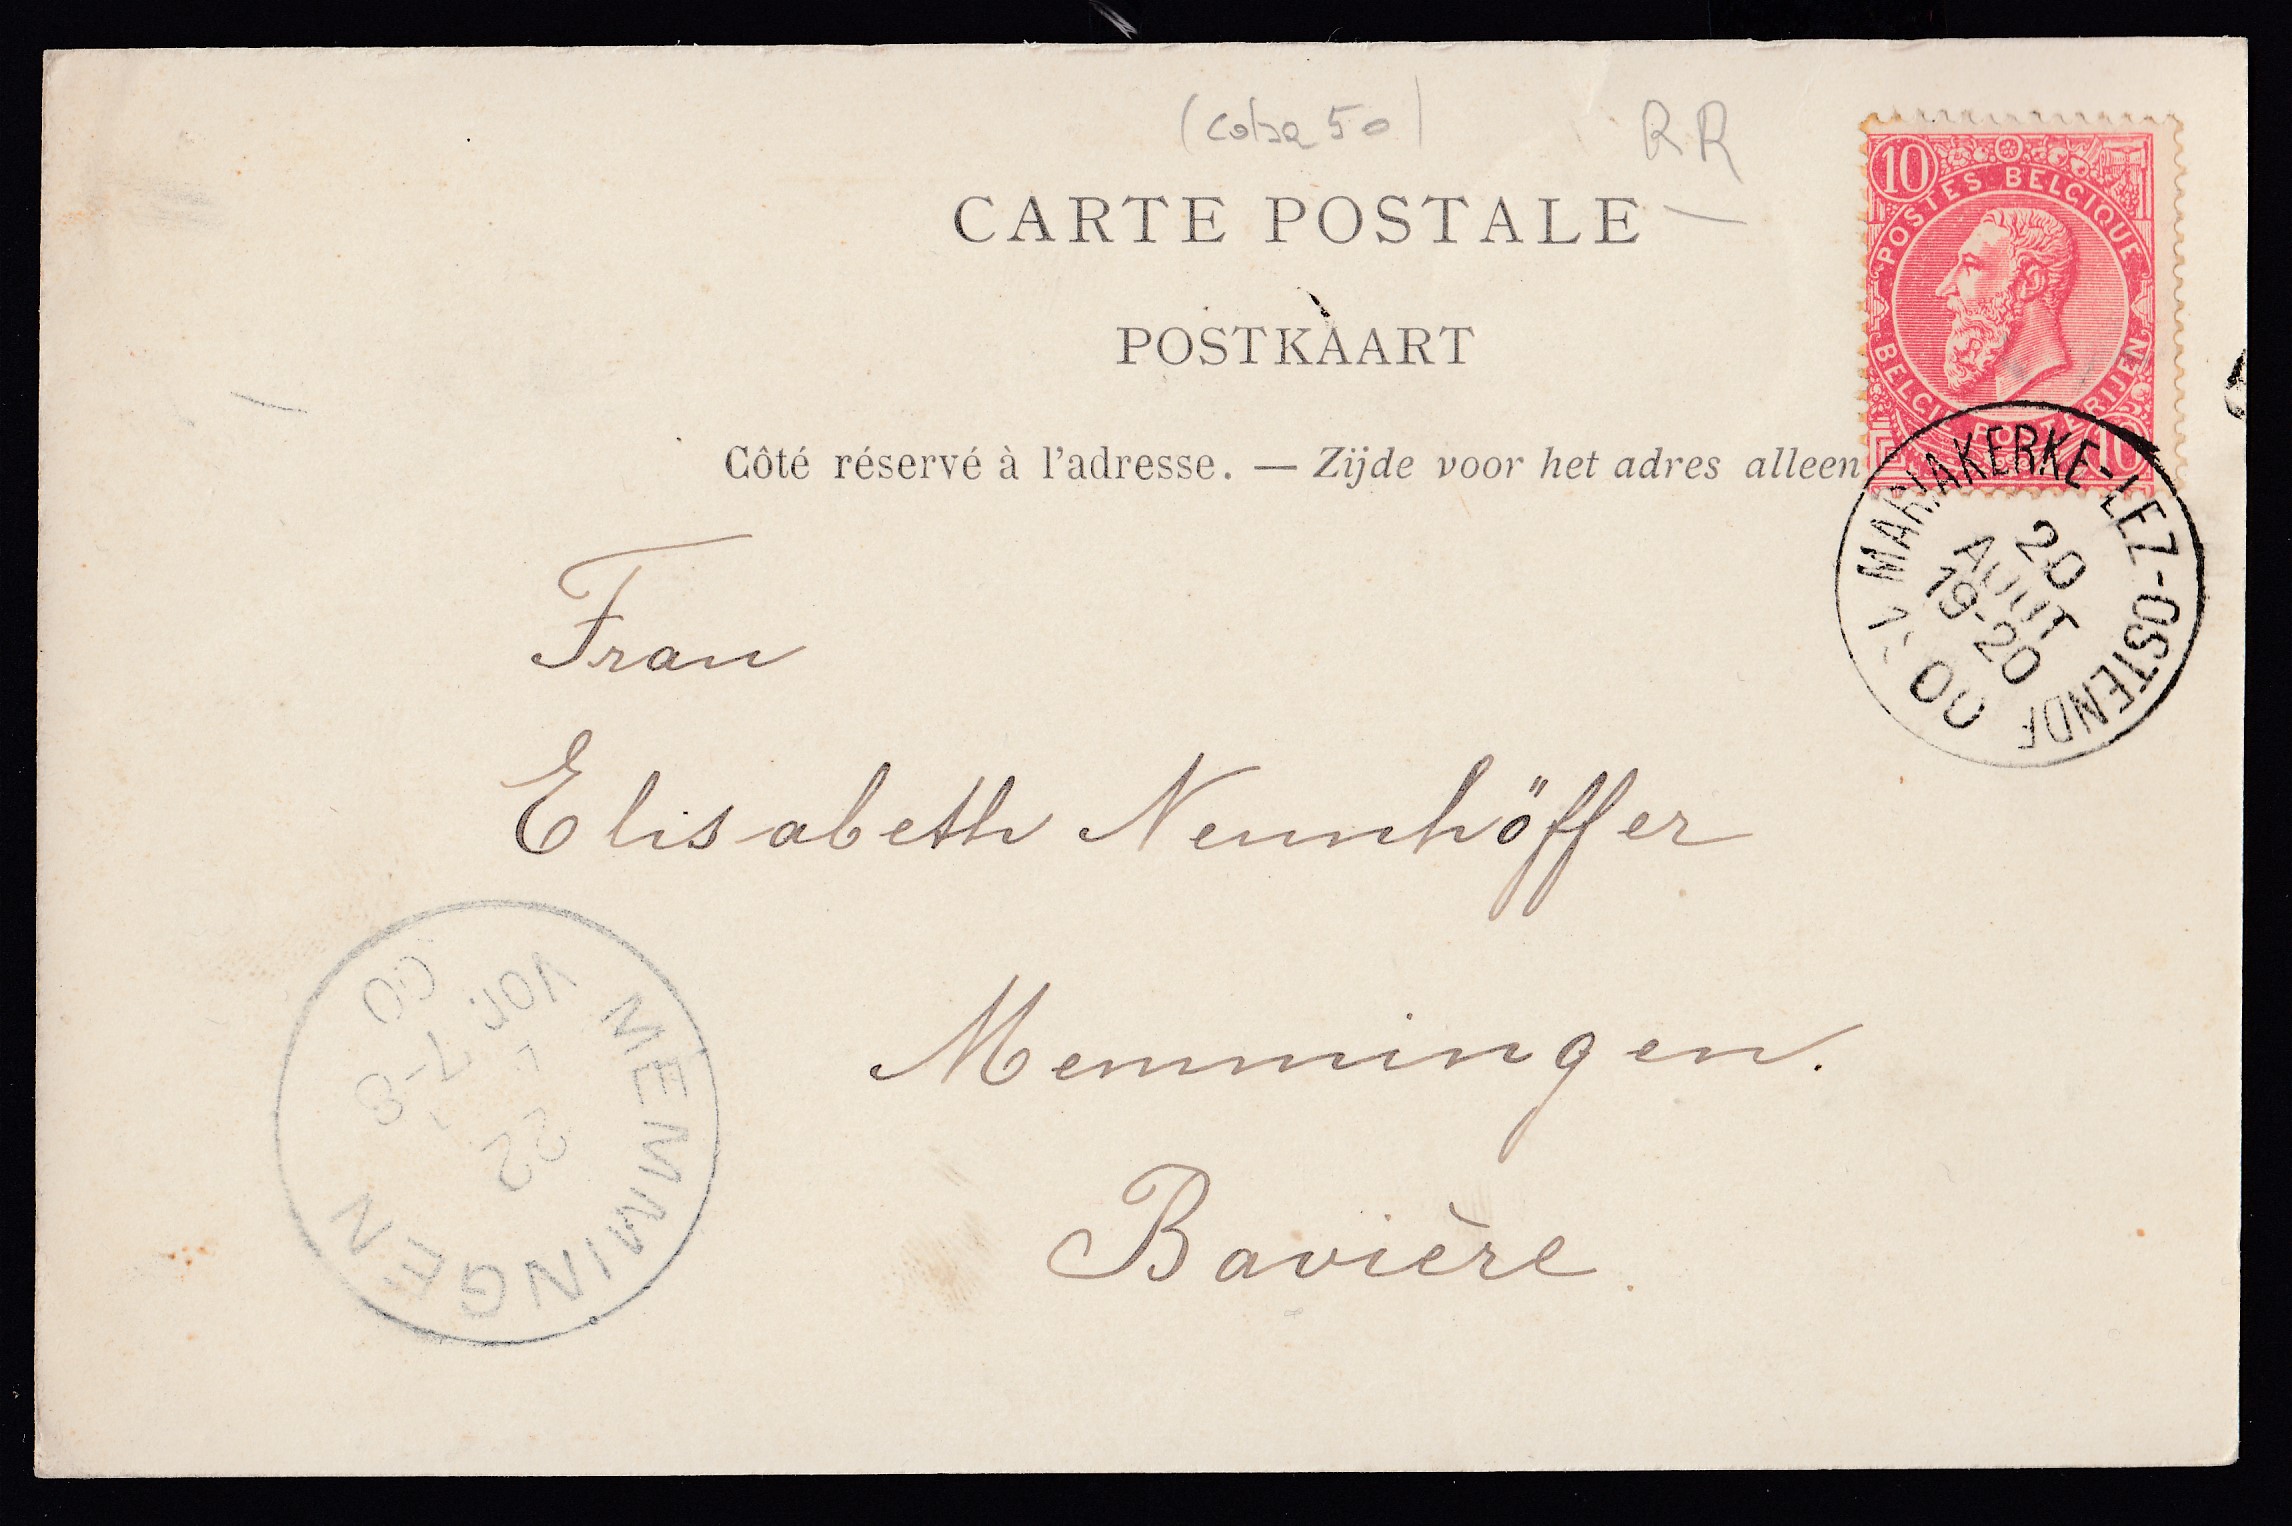 (Coba 50)
RR
CARTE POSTALE
POSTKAART
Côté réservé à l'adresse. — Zijde voor het adres alleen
10
POSTES BELGIQUE
BELGIË POSTERIJEN
10
MARIAKERKE-LEZ-OSTENDE
20
AOUT
19-20
1900
Frau
Elisabeth Neunhöffer
Memmingen.
Bavière.
MEMMINGEN
22
7-8
Vor.
00